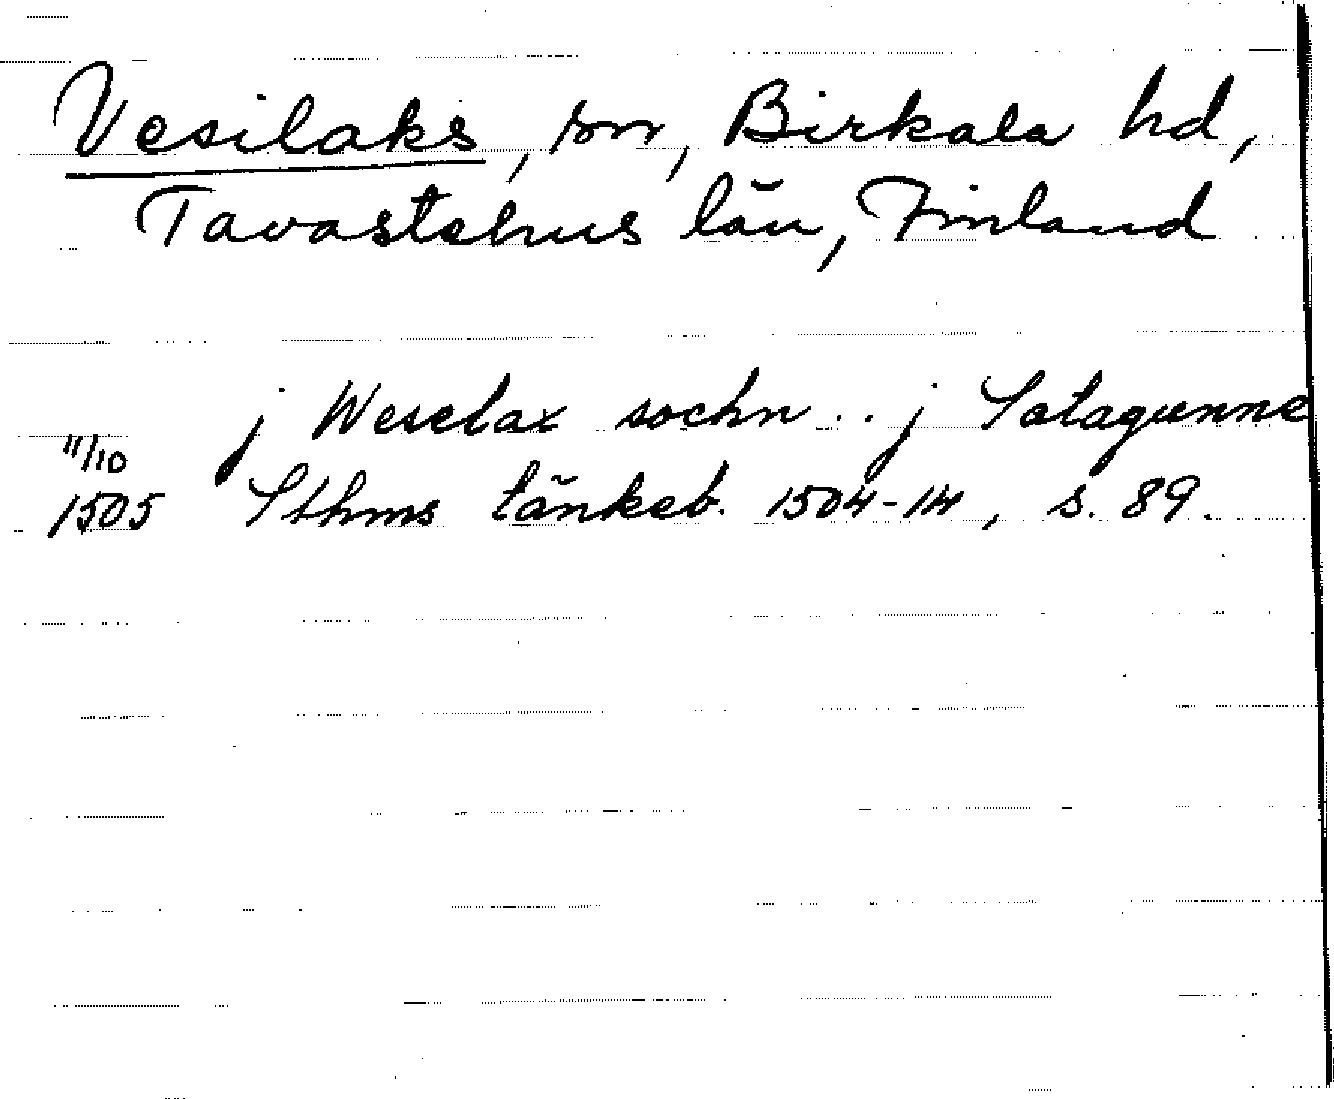 Vesilaks, sn, Birkala hd,
Tavastehus län, Finland
j Weselax sochn .. j Satagunne
11/10
1505 Sthms tänkeb. 1504-14, s. 89.